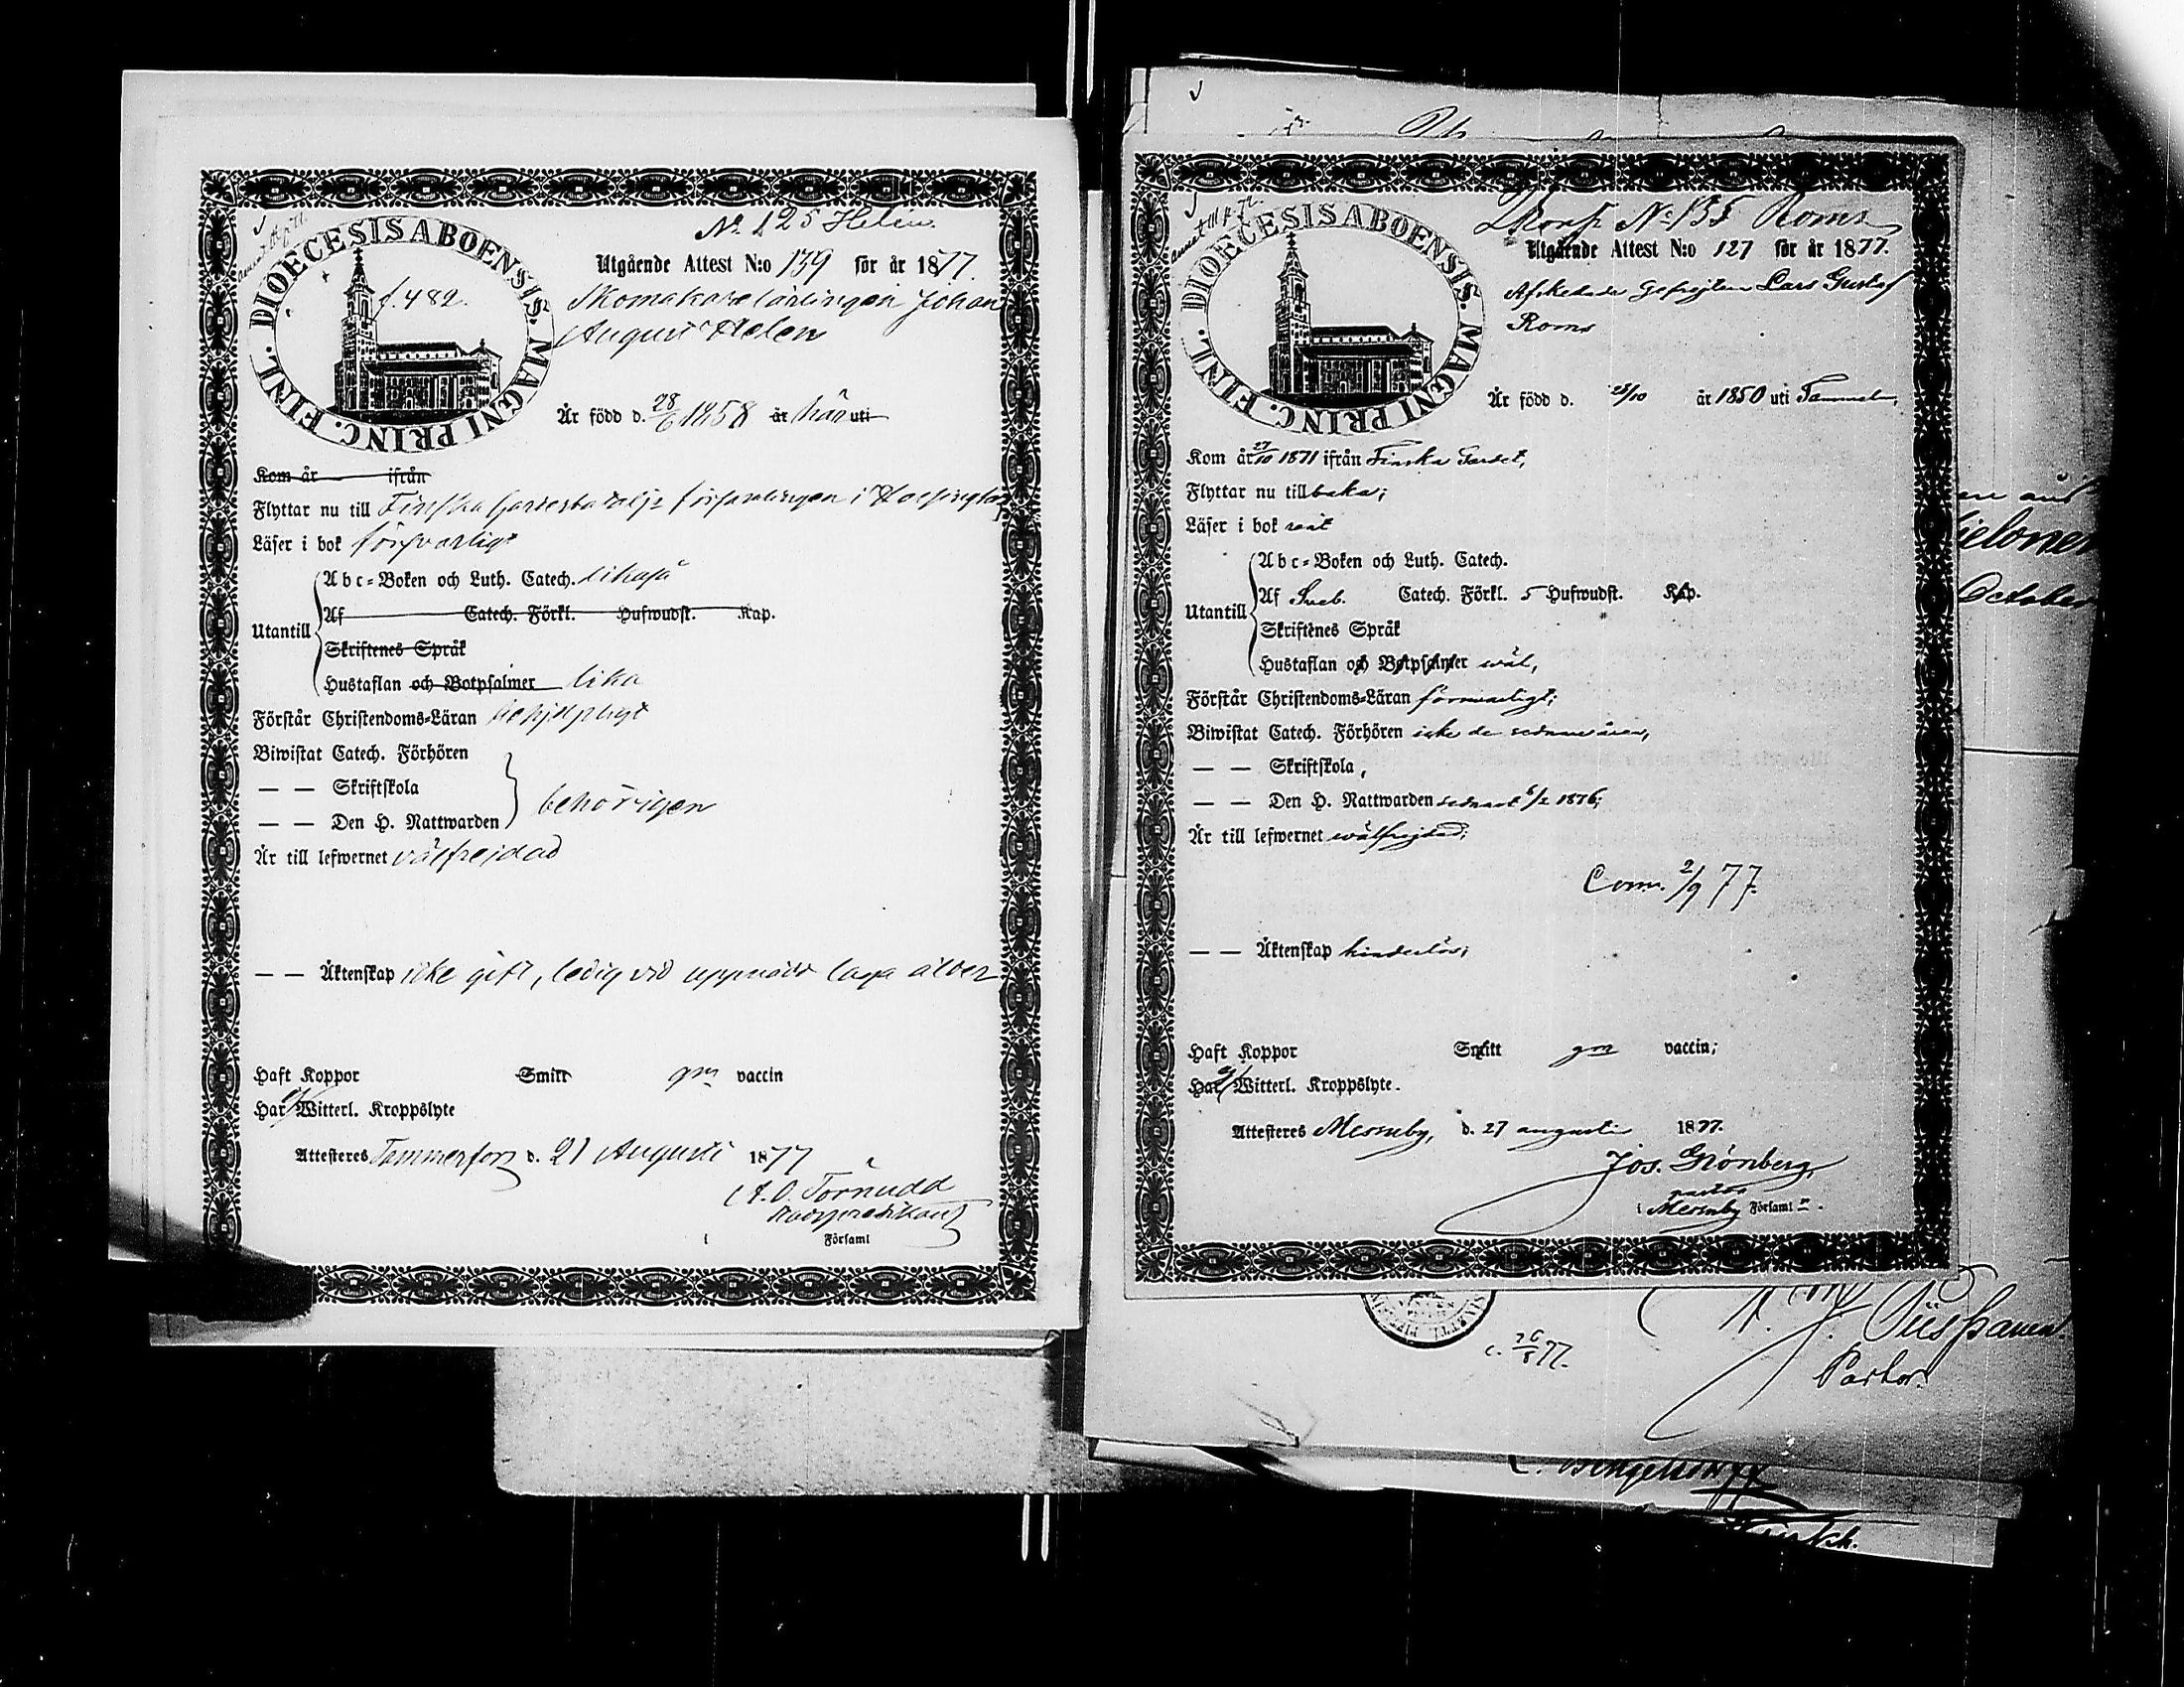 No 125 Helin.
DIOECESIS ABOENSIS. MAGNI PRINC. FINL.
f. 482.
Utgående Attest N:o 139 för år 1877.
Skomakarelärlingen Johan
August Helen
Är född d. 28/6 1858 år här uti
Kom år ifrån
Flyttar nu till Finska Gardesbataljs församlingen i Helsingfors
Läser i bok försvarligt
Utantill
Abc-Boken och Luth. Catech. likaså
Af Catech. Förkl. Hufwudst. Kap.
Skriftenes Språk
Hustaflan och Botpsalmer lika
Förstår Christendoms-Läran behjelpligt
Biwistat Catech. Förhören
— — Skriftskola
— — Den H. Nattwarden
behörigen
Är till lefwernet välfrejdad
— — Äktenskap icke gift, ledig vid uppnådd laga ålder
Haft Koppor Smitt gm vaccin
Har ej Witterl. Kroppslyte
Attesteres Tammerfors d. 21 Augusti 1877
A. O. Törnudd
i Församl
No 135 Roms
DIOECESIS ABOENSIS. MAGNI PRINC. FINL.
Utgående Attest N:o 127 för år 1877.
Afskedade Gefrejten Lars Gustaf
Roms
Är född d. /10 år 1850 uti
Kom år 27/10 1871 ifrån Finska Gardet,
Flyttar nu tillbaka;
Läser i bok
Utantill
Abc-Boken och Luth. Catech.
Af Sveb. Catech. Förkl. 5 Hufwudst. Kap.
Skriftenes Språk
Hustaflan och Botpsalmer wäl,
Förstår Christendoms-Läran försvarligt;
Biwistat Catech. Förhören icke de sednare åren,
— — Skriftskola,
— — Den H. Nattwarden sednast 6/2 1876;
Är till lefwernet wälfrejdad;
Comm. 2/9 77.
— — Äktenskap hinderlös;
Haft Koppor Smitt gm vaccin;
Har ej Witterl. Kroppslyte.
Attesteres Messuby, d. 27 augusti 1877.
Jos. Grönberg,
pastor
i Messuby Församl
October
c. 26/8 77.
Pastor.